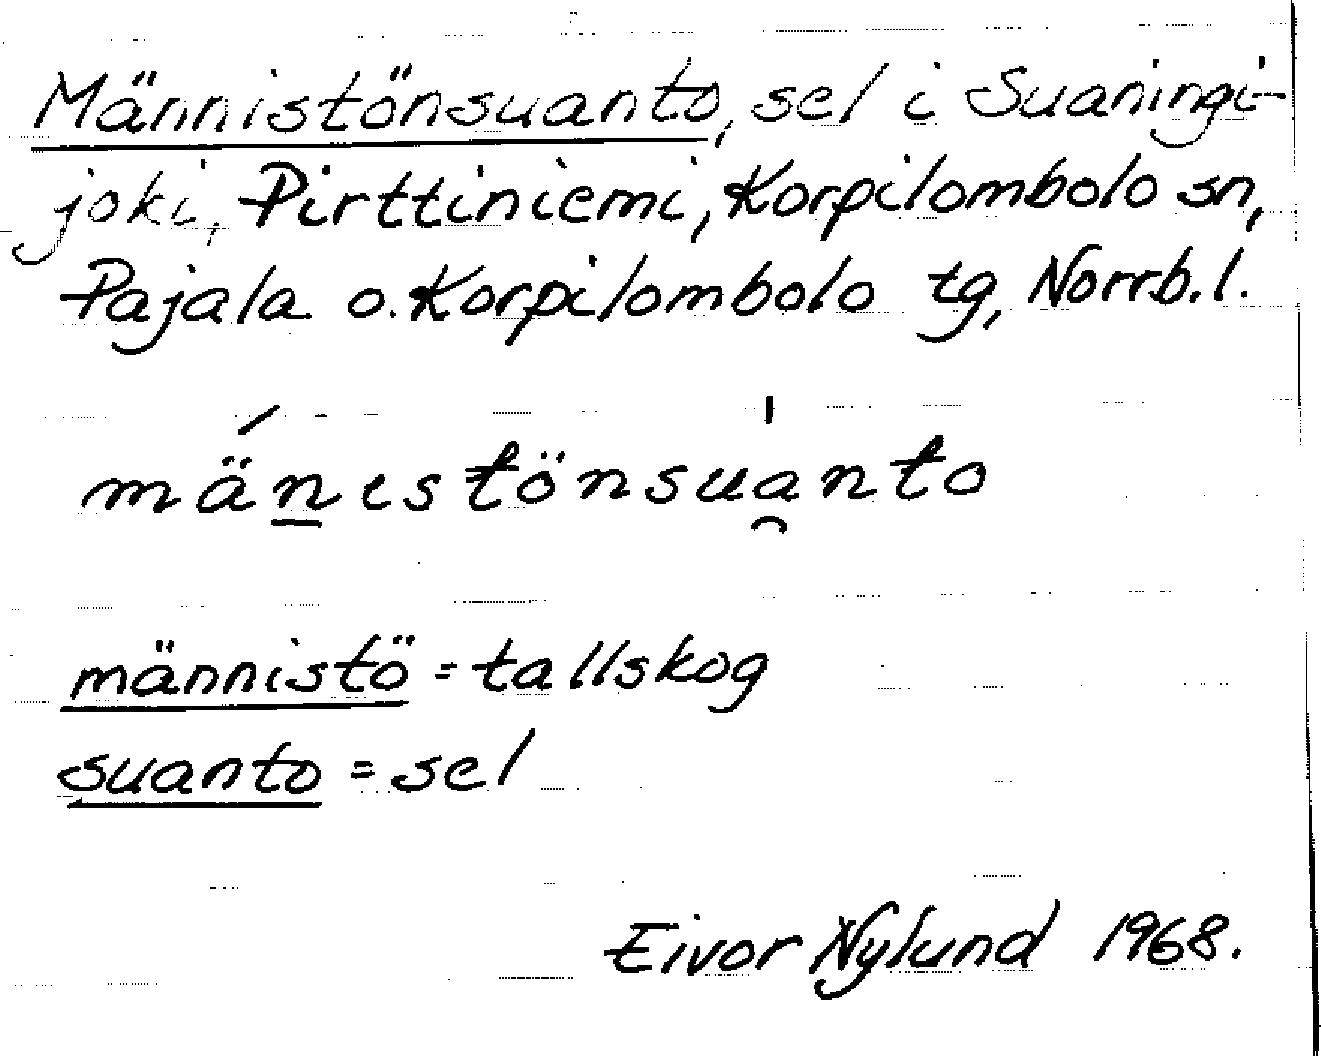 Männistönsuanto, sel i Suaningi-
joki, Pirttiniemi, Korpilombolo sn,
Pajala o. Korpilombolo tg, Norrb.l.
mä́n̲istönsua̯̍nto
männistö = tallskog
suanto = sel
Eivor Nylund 1968.